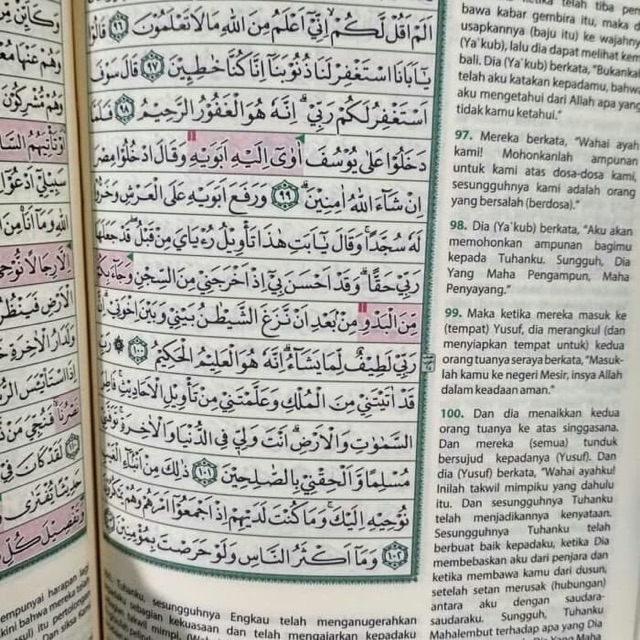 اَلَمْ اَقُلْ لَّكُمْ اِنِّيْٓ اَعْلَمُ مِنَ اللّٰهِ مَا لَا تَعْلَمُوْنَ ﴿٩٦﴾ قَالُوْا
يٰٓاَبَانَا اسْتَغْفِرْ لَنَا ذُنُوْبَنَآ اِنَّا كُنَّا خٰطِـِٕيْنَ ﴿٩٧﴾ قَالَ سَوْفَ
اَسْتَغْفِرُ لَكُمْ رَبِّيْ ۗ اِنَّهٗ هُوَ الْغَفُوْرُ الرَّحِيْمُ ﴿٩٨﴾ فَلَمَّا
دَخَلُوْا عَلٰى يُوْسُفَ اٰوٰٓى اِلَيْهِ اَبَوَيْهِ وَقَالَ ادْخُلُوْا مِصْرَ
اِنْ شَاۤءَ اللّٰهُ اٰمِنِيْنَ ۗ ﴿٩٩﴾ وَرَفَعَ اَبَوَيْهِ عَلَى الْعَرْشِ وَخَرُّوْا
لَهٗ سُجَّدًا ۚ وَقَالَ يٰٓاَبَتِ هٰذَا تَأْوِيْلُ رُءْيَايَ مِنْ قَبْلُ ۖ قَدْ جَعَلَهَا
رَبِّيْ حَقًّا ۗ وَقَدْ اَحْسَنَ بِيْٓ اِذْ اَخْرَجَنِيْ مِنَ السِّجْنِ وَجَاۤءَ بِكُمْ
مِّنَ الْبَدْوِ مِنْۢ بَعْدِ اَنْ نَّزَغَ الشَّيْطٰنُ بَيْنِيْ وَبَيْنَ اِخْوَتِيْ ۗ اِنَّ
رَبِّيْ لَطِيْفٌ لِّمَا يَشَاۤءُ ۗ اِنَّهٗ هُوَ الْعَلِيْمُ الْحَكِيْمُ ﴿١٠٠﴾ ۞ رَبِّ
قَدْ اٰتَيْتَنِيْ مِنَ الْمُلْكِ وَعَلَّمْتَنِيْ مِنْ تَأْوِيْلِ الْاَحَادِيْثِ ۚ فَاطِرَ
السَّمٰوٰتِ وَالْاَرْضِ ۗ اَنْتَ وَلِيّٖ فِى الدُّنْيَا وَالْاٰخِرَةِ ۚ تَوَفَّنِيْ
مُسْلِمًا وَّاَلْحِقْنِيْ بِالصّٰلِحِيْنَ ﴿١٠١﴾ ذٰلِكَ مِنْ اَنْۢبَاۤءِ الْغَيْبِ
نُوْحِيْهِ اِلَيْكَ ۚ وَمَا كُنْتَ لَدَيْهِمْ اِذْ اَجْمَعُوْٓا اَمْرَهُمْ وَهُمْ يَمْكُرُوْنَ
وَمَآ اَكْثَرُ النَّاسِ وَلَوْ حَرَصْتَ بِمُؤْمِنِيْنَ ﴿١٠٢﴾
ketika telah tiba
bawa kabar gembira itu, maka
usapkannya (baju itu) ke wajahnya
(Ya'kub), lalu dia dapat melihat kem-
bali. Dia (Ya'kub) berkata, "Bukankah
telah aku katakan kepadamu, bahwa
aku mengetahui dari Allah apa yang
tidak kamu ketahui."
97. Mereka berkata, "Wahai ayah
kami! Mohonkanlah ampunan
untuk kami atas dosa-dosa kami,
sesungguhnya kami adalah orang
yang bersalah (berdosa)."
98. Dia (Ya'kub) berkata, "Aku akan
memohonkan ampunan bagimu
kepada Tuhanku. Sungguh, Dia
Yang Maha Pengampun, Maha
Penyayang."
99. Maka ketika mereka masuk ke
(tempat) Yusuf, dia merangkul (dan
menyiapkan tempat untuk) kedua
orang tuanya seraya berkata, "Masuk-
lah kamu ke negeri Mesir, insya Allah
dalam keadaan aman."
100. Dan dia menaikkan kedua
orang tuanya ke atas singgasana.
Dan mereka (semua) tunduk
bersujud kepadanya (Yusuf). Dan
dia (Yusuf) berkata, "Wahai ayahku!
Inilah takwil mimpiku yang dahulu
itu. Dan sesungguhnya Tuhanku
telah menjadikannya kenyataan.
Sesungguhnya Tuhanku telah
berbuat baik kepadaku, ketika Dia
membebaskan aku dari penjara dan
ketika membawa kamu dari dusun,
setelah setan merusak (hubungan)
antara aku dengan saudara-
saudaraku. Sungguh, Tuhanku
Mahalembut terhadap apa yang Dia
Tuhanku, sesungguhnya Engkau telah menganugerahkan
sebagian kekuasaan dan telah mengajarkan kepadaku